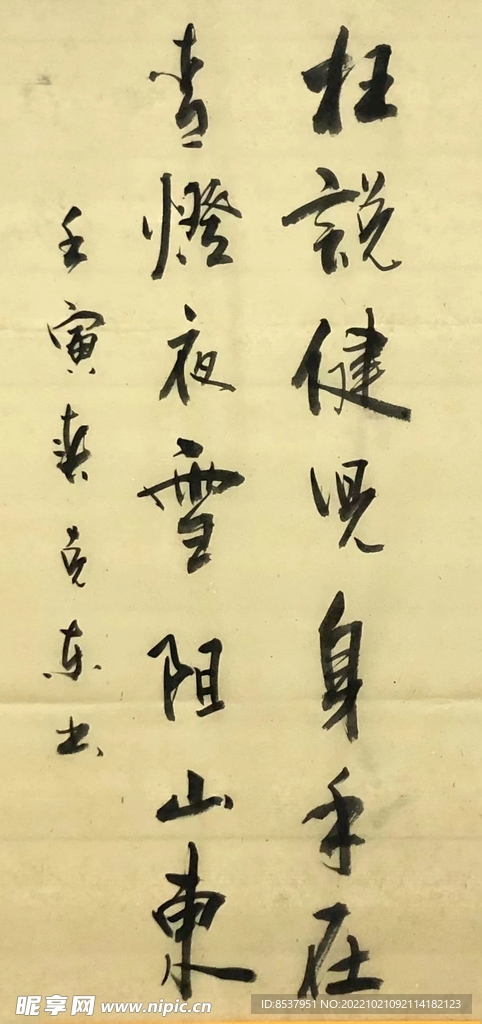 枉説健児身手在
青燈夜雪阻山東
壬寅龚克东书
昵享网 www.nipic.cn
ID:8537951 NO:20221021092114182123